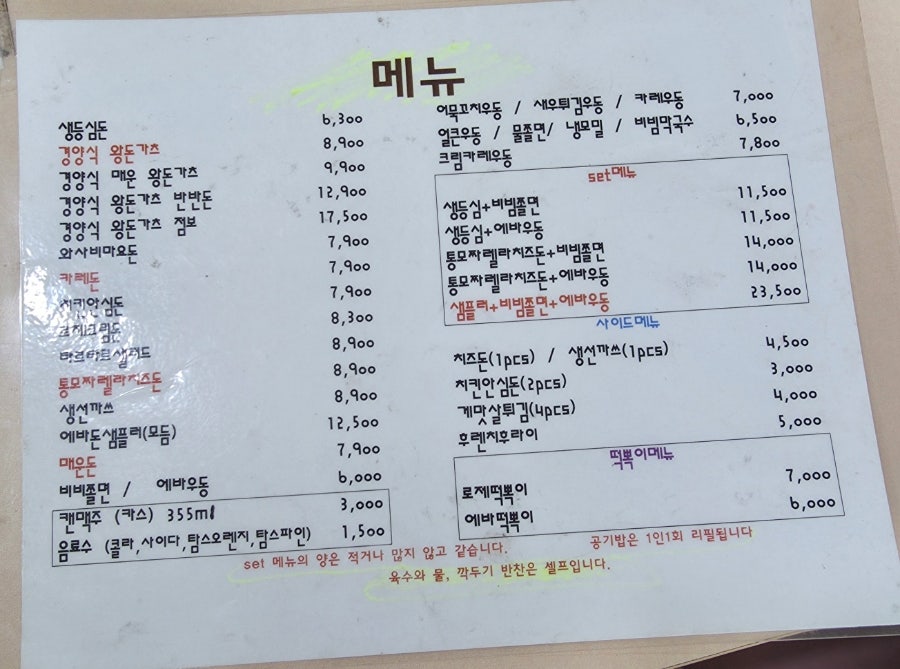 메뉴
생등심돈 6,300
경양식 왕돈가츠 8,900
경양식 매운 왕돈가츠 9,900
경양식 왕돈가츠 반반돈 12,900
경양식 왕돈가츠 점보 17,500
와사비마요돈 7,900
카레돈 7,900
치킨안심돈 7,900
8,300
타르타르샐러드 8,900
통모짜렐라치즈돈 8,900
생선까쓰 8,900
에바돈샘플러(모듬) 12,500
매운돈 7,900
비빔쫄면 / 에바우동 6,000
캔맥주 (카스) 355ml 3,000
음료수 (콜라,사이다,탐스오렌지,탐스파인) 1,500
어묵꼬치우동 / 새우튀김우동 / 카레우동 7,000
얼큰우동 / 물쫄면/ 냉모밀 / 비빔막국수 6,500
크림카레우동 7,800
set메뉴
생등심+비빔쫄면 11,500
생등심+에바우동 11,500
통모짜렐라치즈돈+비빔쫄면 14,000
통모짜렐라치즈돈+에바우동 14,000
샘플러+비빔쫄면+에바우동 23,500
사이드메뉴
치즈돈(1pcs) / 생선까쓰(1pcs) 4,500
치킨안심돈(2pcs) 3,000
게맛살튀김(4pcs) 4,000
후렌치후라이 5,000
떡뽁이메뉴
로제떡뽁이 7,000
에바떡뽁이 6,000
set 메뉴의 양은 적거나 많지 않고 같습니다.
공기밥은 1인1회 리필됩니다
육수와 물, 깍두기 반찬은 셀프입니다.